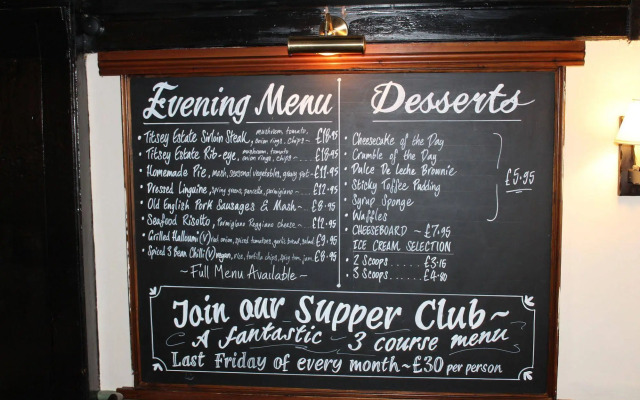 Evening Menu
• Titsey Estate Sirloin Steak, mushroom, tomato, onion rings, chips ~ £18.95
• Titsey Estate Rib-eye, mushroom, tomato onion rings, chips ~ £18.95
• Homemade Pie, mash, seasonal vegetables, gravy pot ~ £11.95
• Dressed Linguine, spring greens, pancetta, parmigiano ~ £12.95
• Old English Pork Sausages & Mash ~ £8.95
• Seafood Risotto, Parmigiano Reggiano cheese ~ £12.95
• Grilled Halloumi (V) red onion, spiced tomatoes, garlic bread, salad £9.95
• Spiced 3 Bean Chilli (V) vegan, rice, tortilla chips, spicy tom. jam £8.95
~ Full Menu Available ~
Desserts
• Cheesecake of the Day
• Crumble of the Day
• Dulce De Leche Brownie
• Sticky Toffee Pudding
• Syrup Sponge
• Waffles
£5.95
• CHEESEBOARD ~ £7.95
ICE CREAM SELECTION
• 2 Scoops ...... £3.15
• 3 Scoops ...... £4.60
Join our Supper Club ~
A fantastic ~ 3 course menu
Last Friday of every month ~ £30 per person